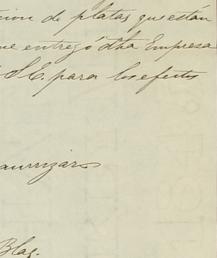 cion de platas que están
que entregó dha Empresa
S.E. para los efectos
aurrizar
Blas.